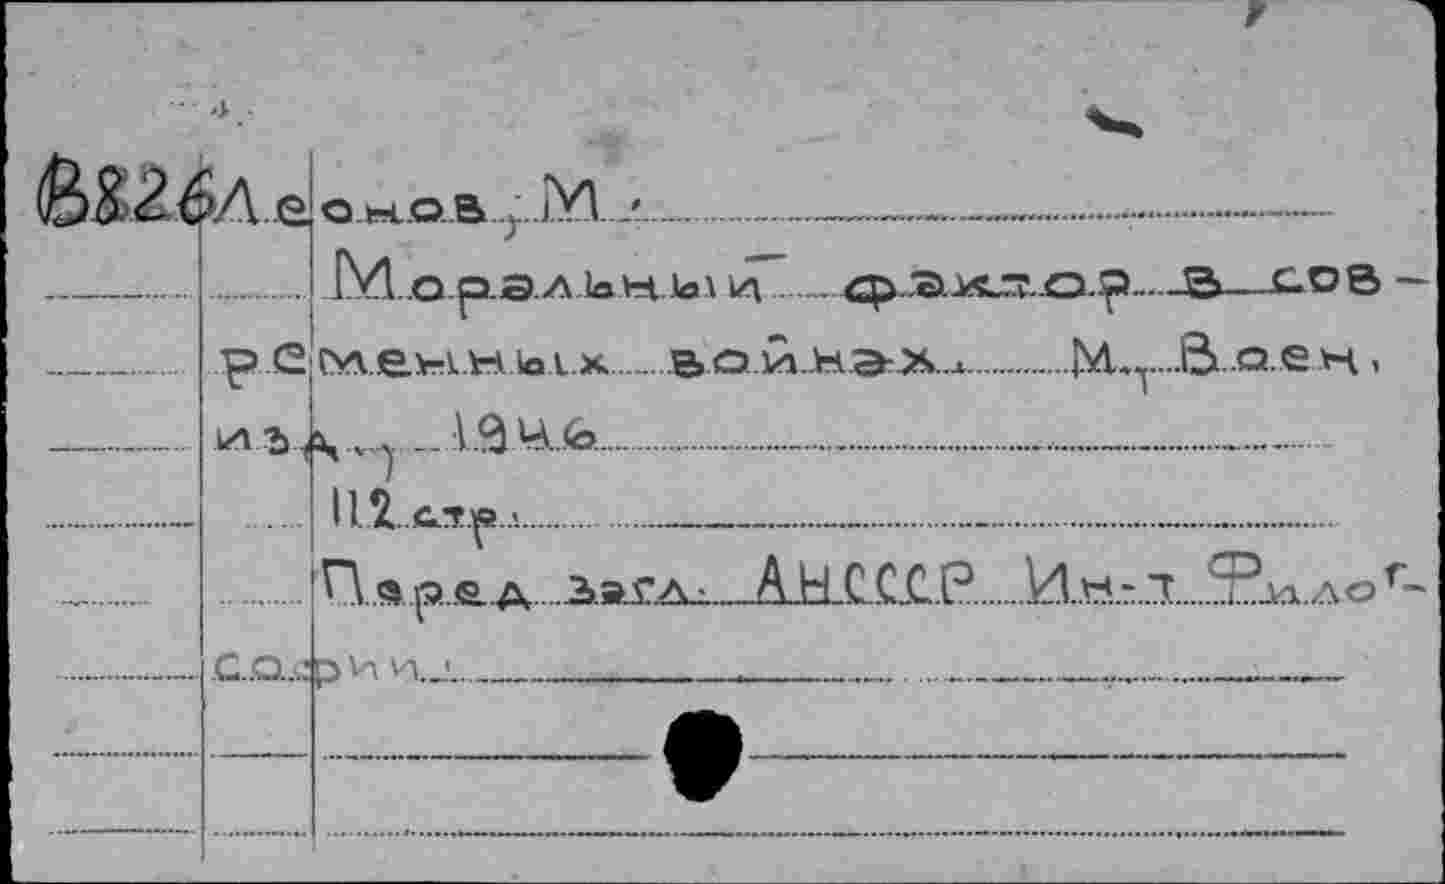 B826 Леонов, М.
Моральный фактор в сов-
ременных войнах. М., Воен.
изд., 1946
112 стр.
Перед загл. АНСССР Ин-т Филог-
софии.